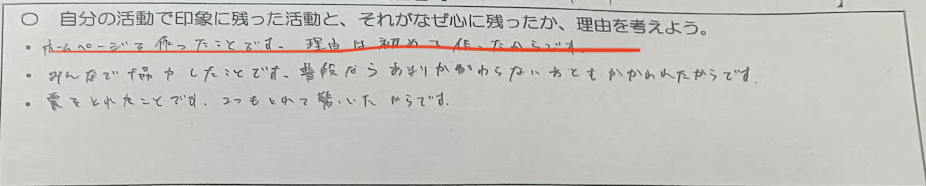 ○ 自分の活動で印象に残った活動と、それがなぜ心に残ったか、理由を考えよう。
・ホームページを作ったことです。理由は初めて作ったからです。
・みんなで したことです。普段ならあまりかかわらない ともかかわれたからです。
・賞をとれたことです。2つもとれて驚いたからです。